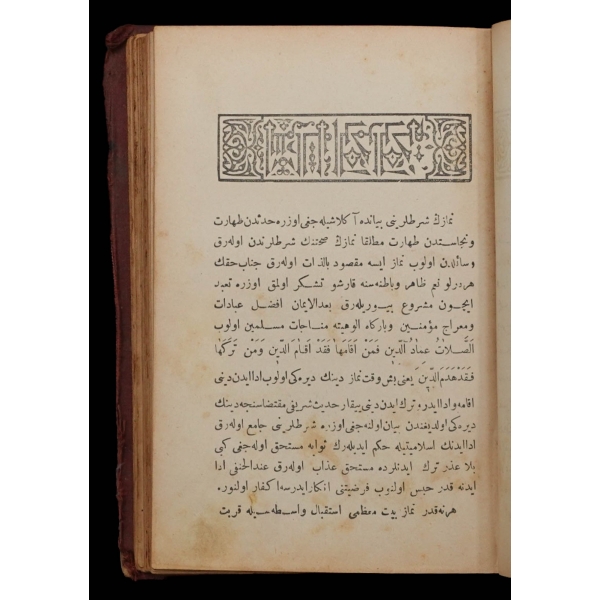 نمازڭ شرطلرینی بیانده آ كلاشیله جغی اوزره حدثدن طهارت
و نجاستدن طهارت مطلقا نمازڭ صحتنك شرطلرندن اوله رق
وسائلدن اولوب نماز ایسه مقصود بالذات اوله رق جناب حقك
هر درلو نعم ظاهر و باطنه سنه قارشو تشكر اولمق اوزره تعبد
ایچون مشروع بیوریله رق بعد الایمان افضل عبادات
و معراج مؤمنین و بارگاه الوهیته مناجات مسلمین اولوب
اَلصَّلاٰتُ عِمادُ الدّینِ فَمَنْ اَقامَها فَقَدْ اَقامَ الدّینَ وَمَنْ تَرَكَها
فَقَدْ هَدَمَ الدّینَ یعنی بش وقت نماز دینك دیره كی اولوب ادا ایدن دینی
اقامه و ادا ایدر و ترك ایدن دینی ییقار حدیث شریفی مقتضاسنجه دینك
دیره كی اولدیغندن بیان اولنه جغی اوزره شرطلرینی جامع اوله رق
ادا ایدنك اسلامیتیله حكم ایدیله رك ثوابه مستحق اوله جغی كبی
بلا عذر ترك ایدنلرده مستحق عذاب اوله رق عند الحنفی ادا
ایدنه قدر حبس اولنوب فرضیتنی انكار ایدرسه اكفار اولنور .
هر نه قدر نماز بیت معظمی استقبال واسطه سیله قربت